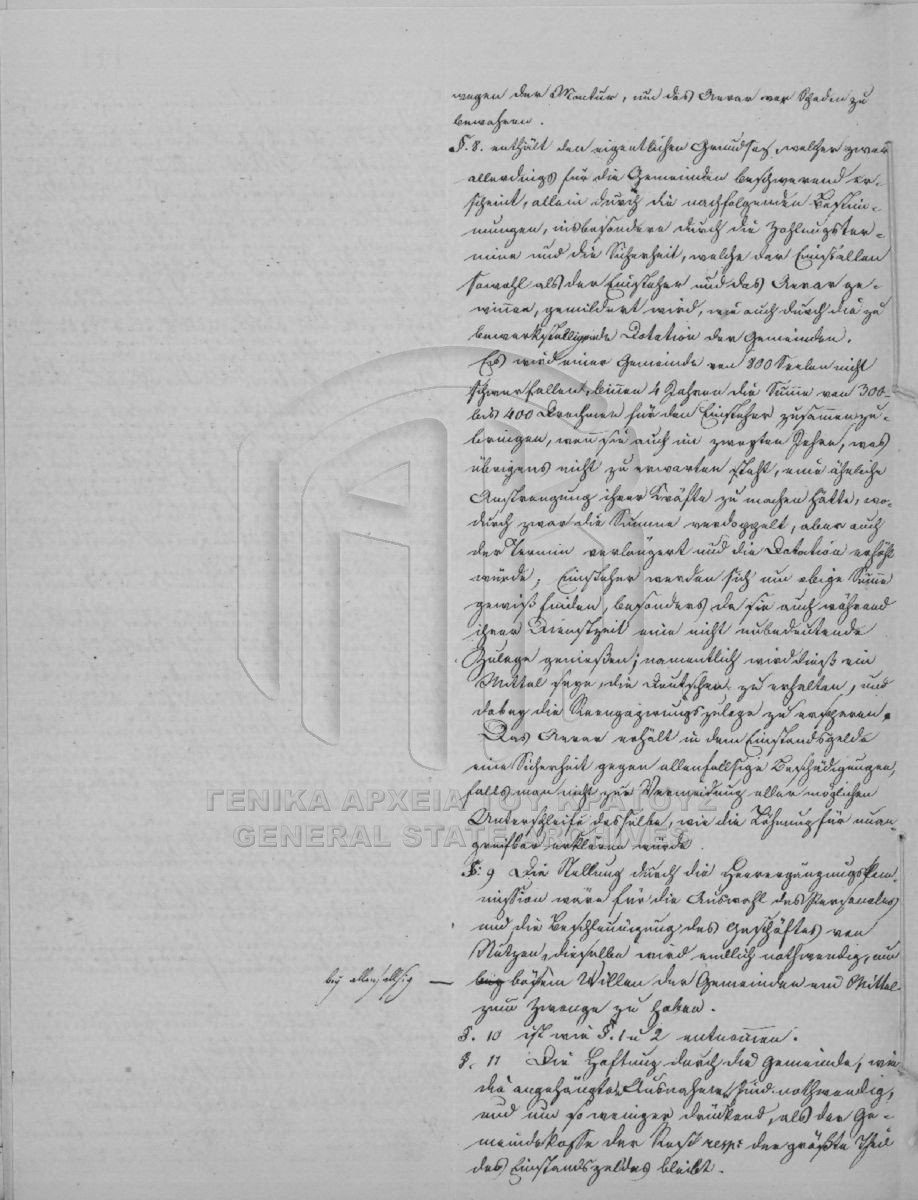 wegen der Montur, um das Aerar vor Schaden zu
bewahren.
§. 8. enthält den eigentlichen Grundsaz, welcher zwar
allerdings für die Gemeinden beschwerend er-
scheint, allein durch die nachfolgenden Bestim-
mungen, insbesondere durch die Zahlungster-
mine und die Sicherheit, welche der Einzustellende
sowohl als der Einsteher und das Aerar ge-
winnen, gemildert wird, wie auch durch die zu
bewerkstelligende Dotation der Gemeinden.
Es wird einer Gemeinde von 800 Seelen nicht
schwer fallen, binnen 4 Jahren die Summe von 300-
bis 400 Drachmen für den Einsteher zusammenzu-
bringen, wenn sie auch im zweyten Jahre, was
übrigens nicht zu erwarten steht, eine ähnliche
Anstrengung ihrer Kräfte zu machen hätte, wo-
durch zwar die Summe verdoppelt, aber auch
der Termin verlängert und die Dotation erhöht
würde; Einsteher werden sich um obige Summe
gewiß finden, besonders da sie auch während
ihrer Dienstzeit eine nicht unbedeutende
Zulage genießen; namentlich wird dieß ein
Mittel seyn, die Deutschen zu erhalten, und
dabey die Reengagirungszulage zu ersparen.
Das Aerar erhält in dem Einstandsgelde
eine Sicherheit gegen allenfallsige Beschädigungen,
falls man nicht zur Vermeidung aller möglichen
Unterschleife dasselbe, wie die Löhnung für unan-
greifbar erklären würde.
ΓΕΝΙΚΑ ΑΡΧΕΙΑ ΤΟΥ ΚΡΑΤΟΥΣ
GENERAL STATE ARCHIVES
§. 9 Die Stellung durch die Heerergänzungskom-
mission wäre für die Auswahl des Personales
und die Beschleunigung des Geschäftes von
Nutzen, dieselbe wird endlich nothwendig, um
bey allenfallsig — bey bösem Willen der Gemeinden ein Mittel
zum Zwange zu haben.
§. 10 ist wie §. 1 u 2 entnommen.
§. 11 Die Haftung durch die Gemeinde, wie
die angehängten Ausnahmen sind nothwendig,
und um so weniger drückend, als der Ge-
meindekasse der Rest respe. der größte Theil
des Einstandsgeldes bleibt.